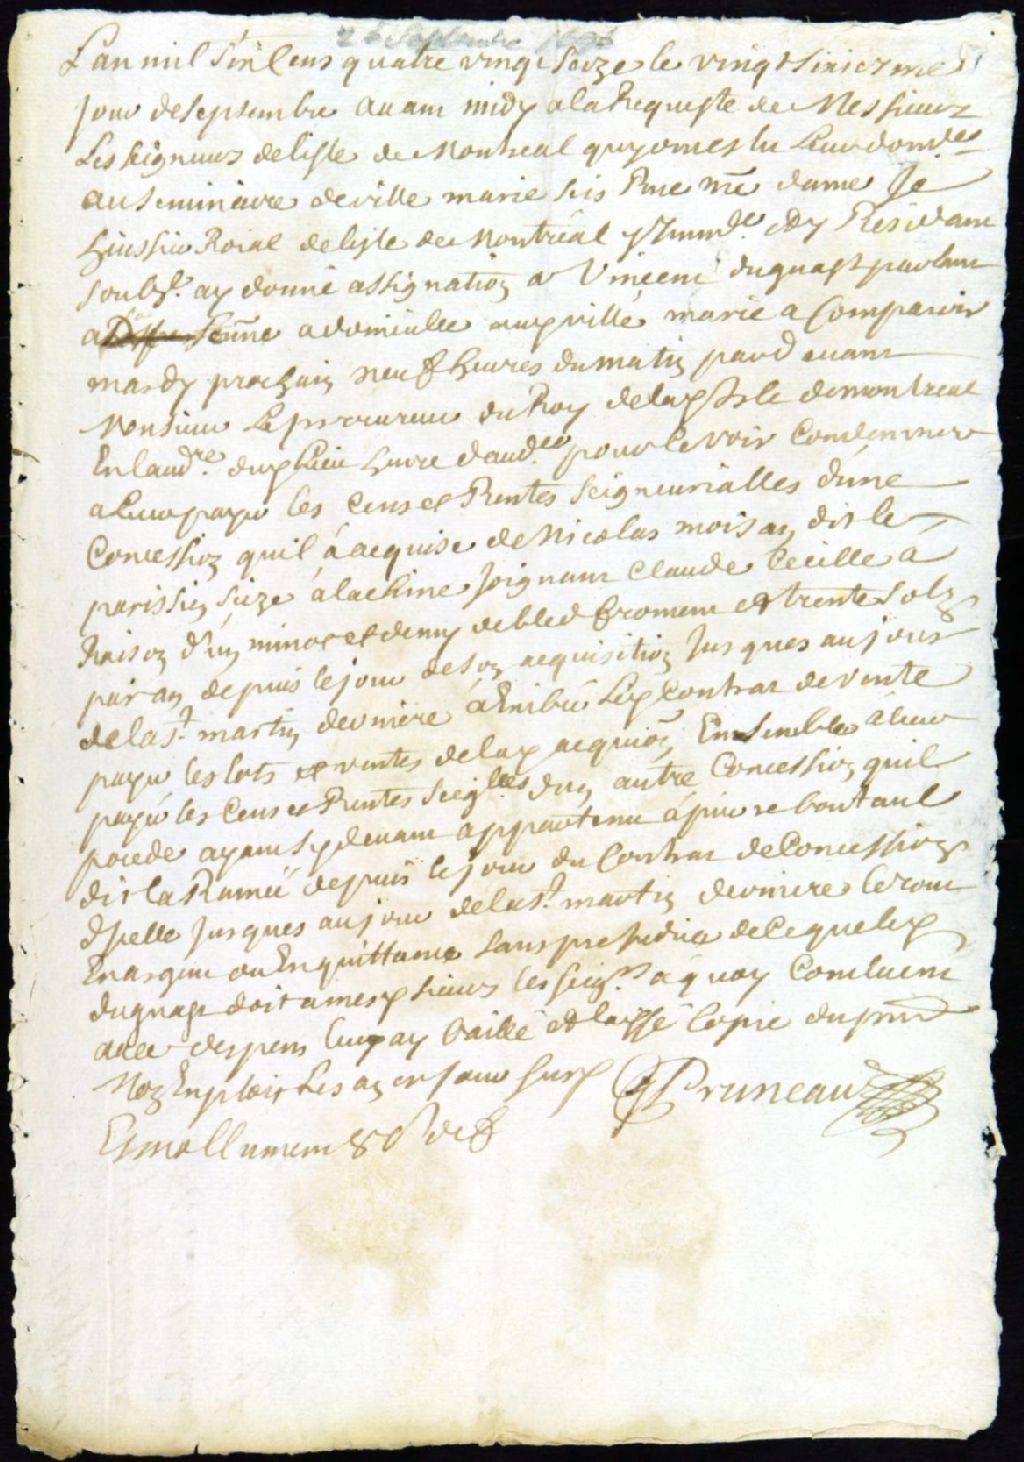 26 septembre 1696
Lan mil Six Cens quatre vingt seize le vingt sixiezme
jour de septembre avam midy a la Requeste de Messieurs
Les seigneurs de lisle de Montreal quy ont eslu Leur domle
au seminaire de ville marie sis Rue nre dame Je
huissier Roial de lisle de Montréal y Immle Residam
soubsé. ay donné assignation a Vincent duguast parlant
a sa femme a domicille aud ville marie a Comparoir
mardy prochain neuf heures du matin pard evant
Monsieur Le procureur du Roy de lad Isle de montreal
En laudre. dud lieu heure daudce pour se voir Condemner
a Leur payer les Cens et Rentes seigneurialles d'une
Concession quil á acquise de Nicolas moisan dit le
parissien size á lachine Joignant Claude Cecille á
Raison d'un minot et demy de bled fromem et trente solz
par an depuis le jour de son acquisition Jusques au jour
de la St. martin derniere á Exibé Led Contrat de vente
payer les lots et ventes de lad acquion Ensemble á leur
payé les Cens et Rentes seiglles dun autre Concession quil
posede ayant cy devant appartenu á pierre
dit la Ramée depuis le jour du Contrat de Concession
dIcelle Jusques au jour de la St. martin derniere le tout
En argen ou En quittance sans prejudice de ce que led
duguast doit a mesd sieurs les seigrs. a quoy Concluent
avec despens luy ay baillé et laissé Copie du prnt
Mon Exploit Les an et jour susd Pruneau